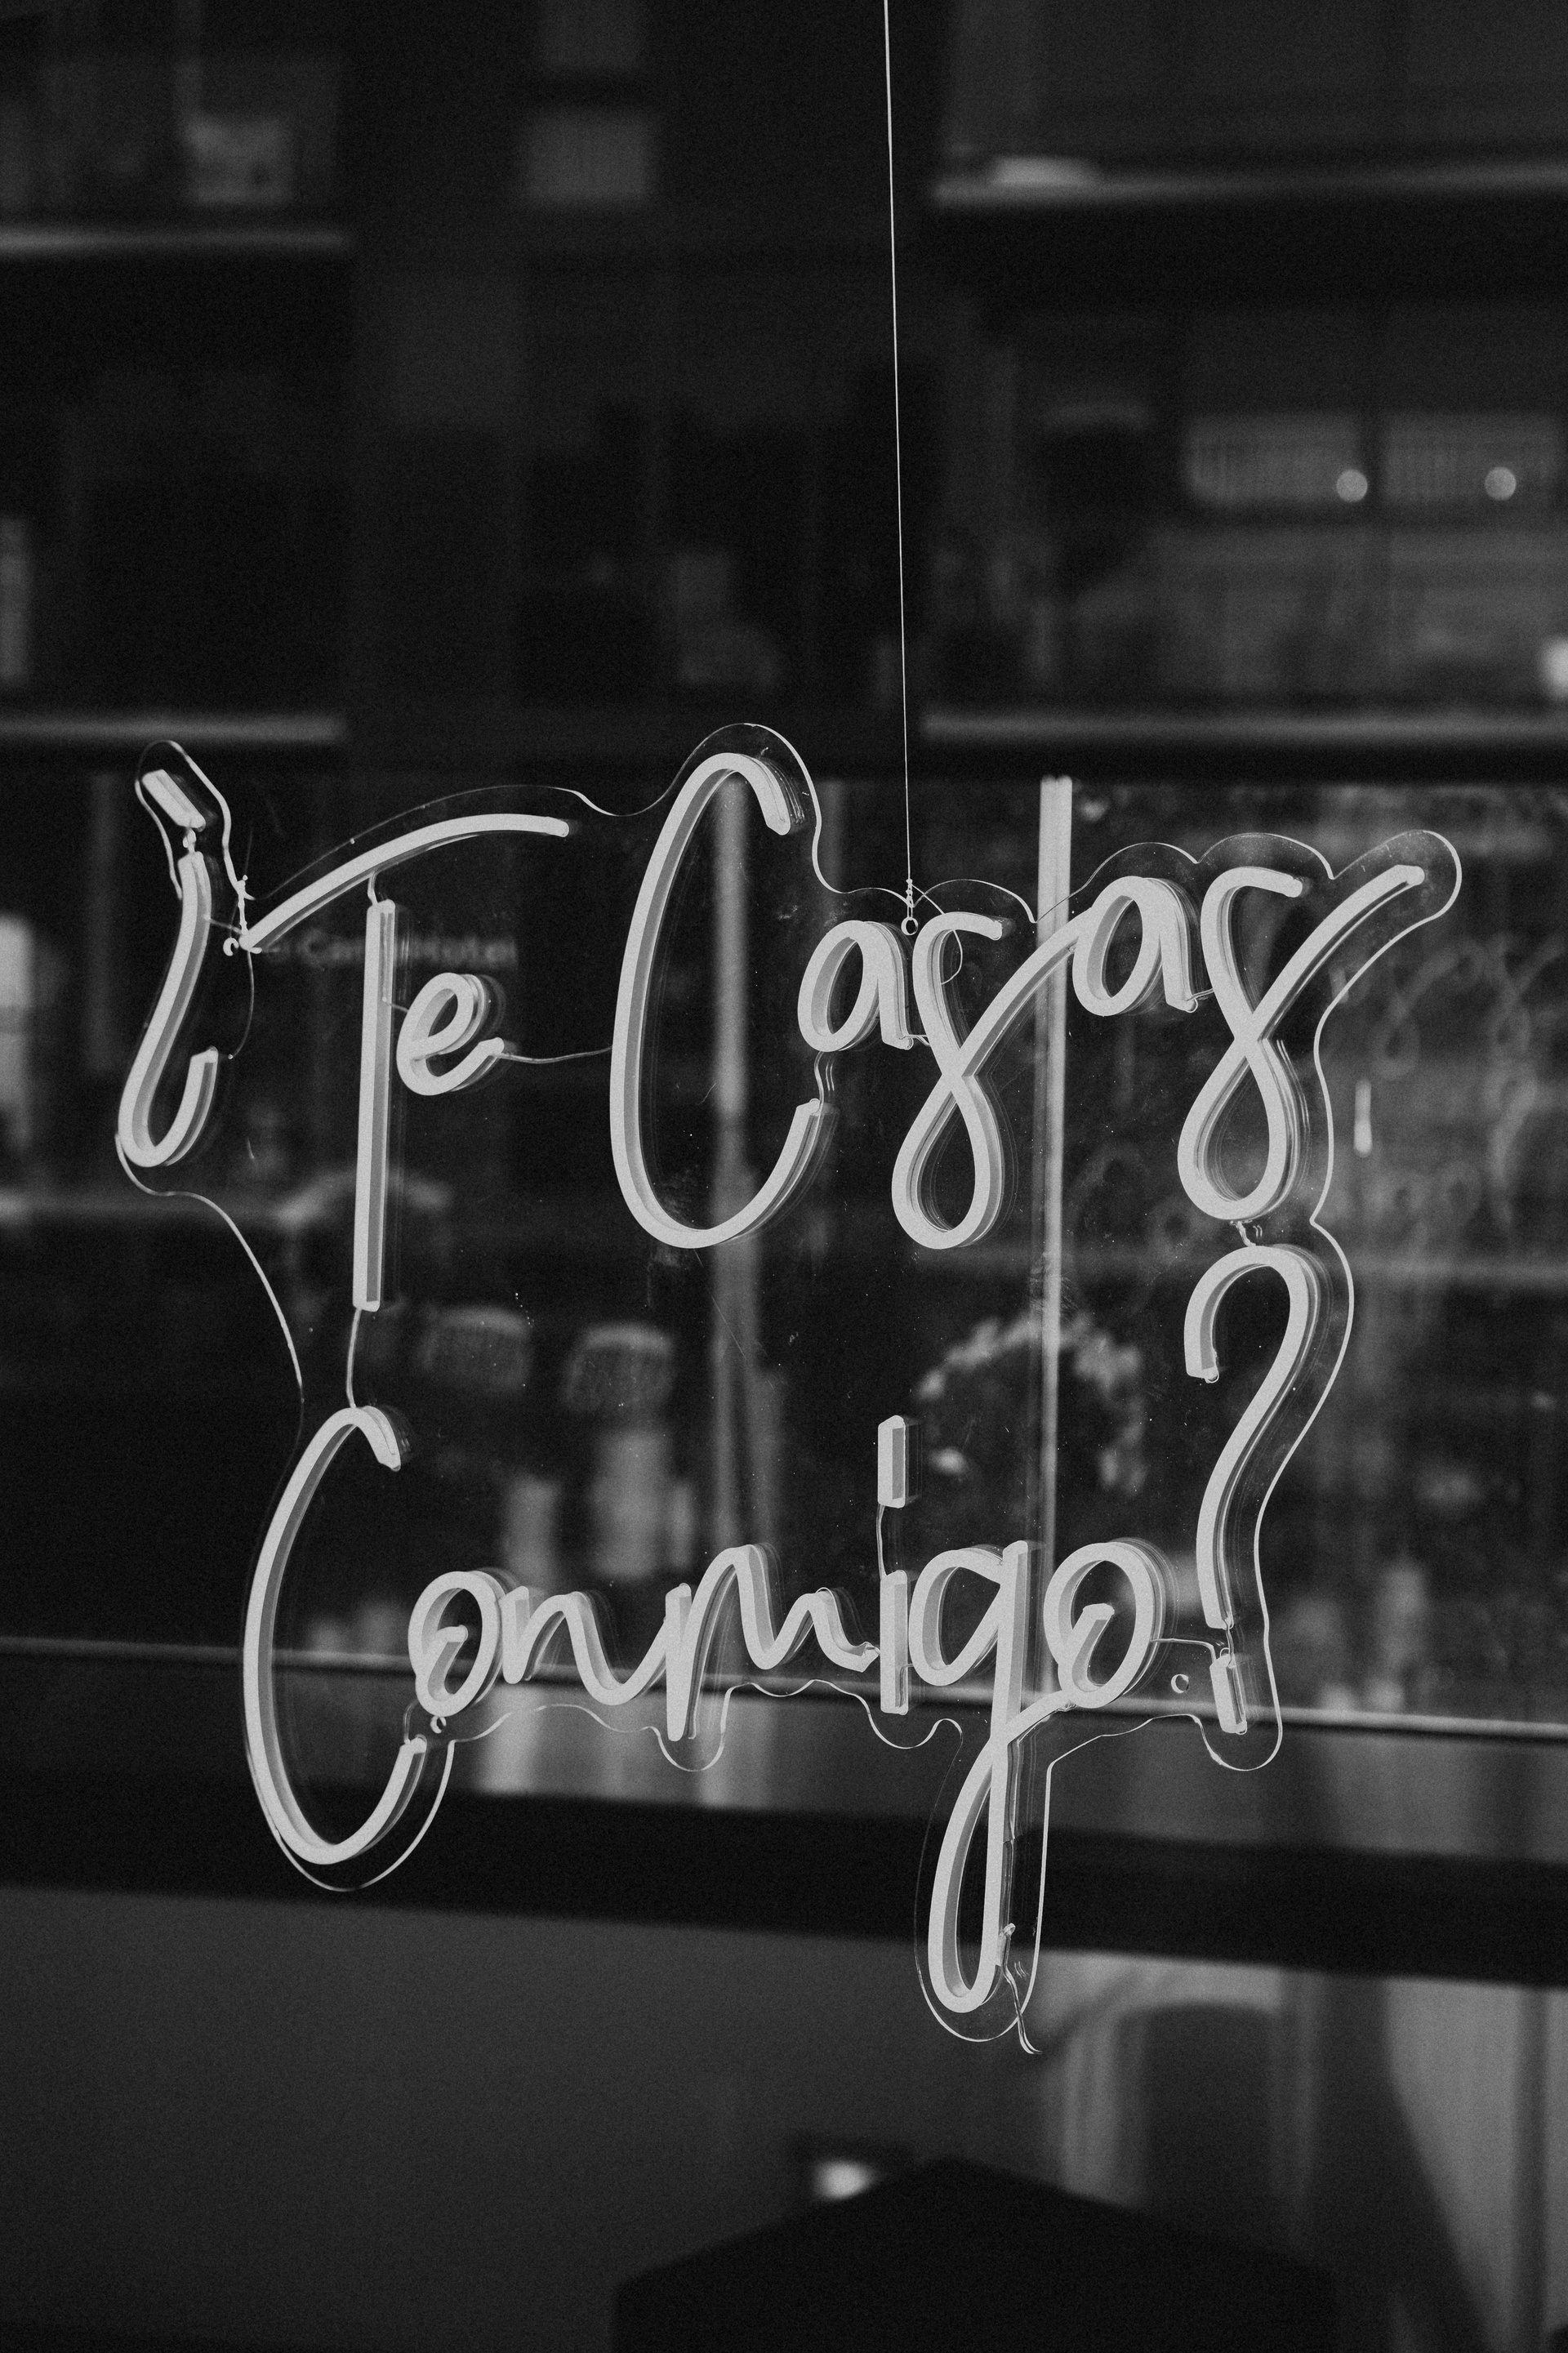 ¿Te Casas
Conmigo?